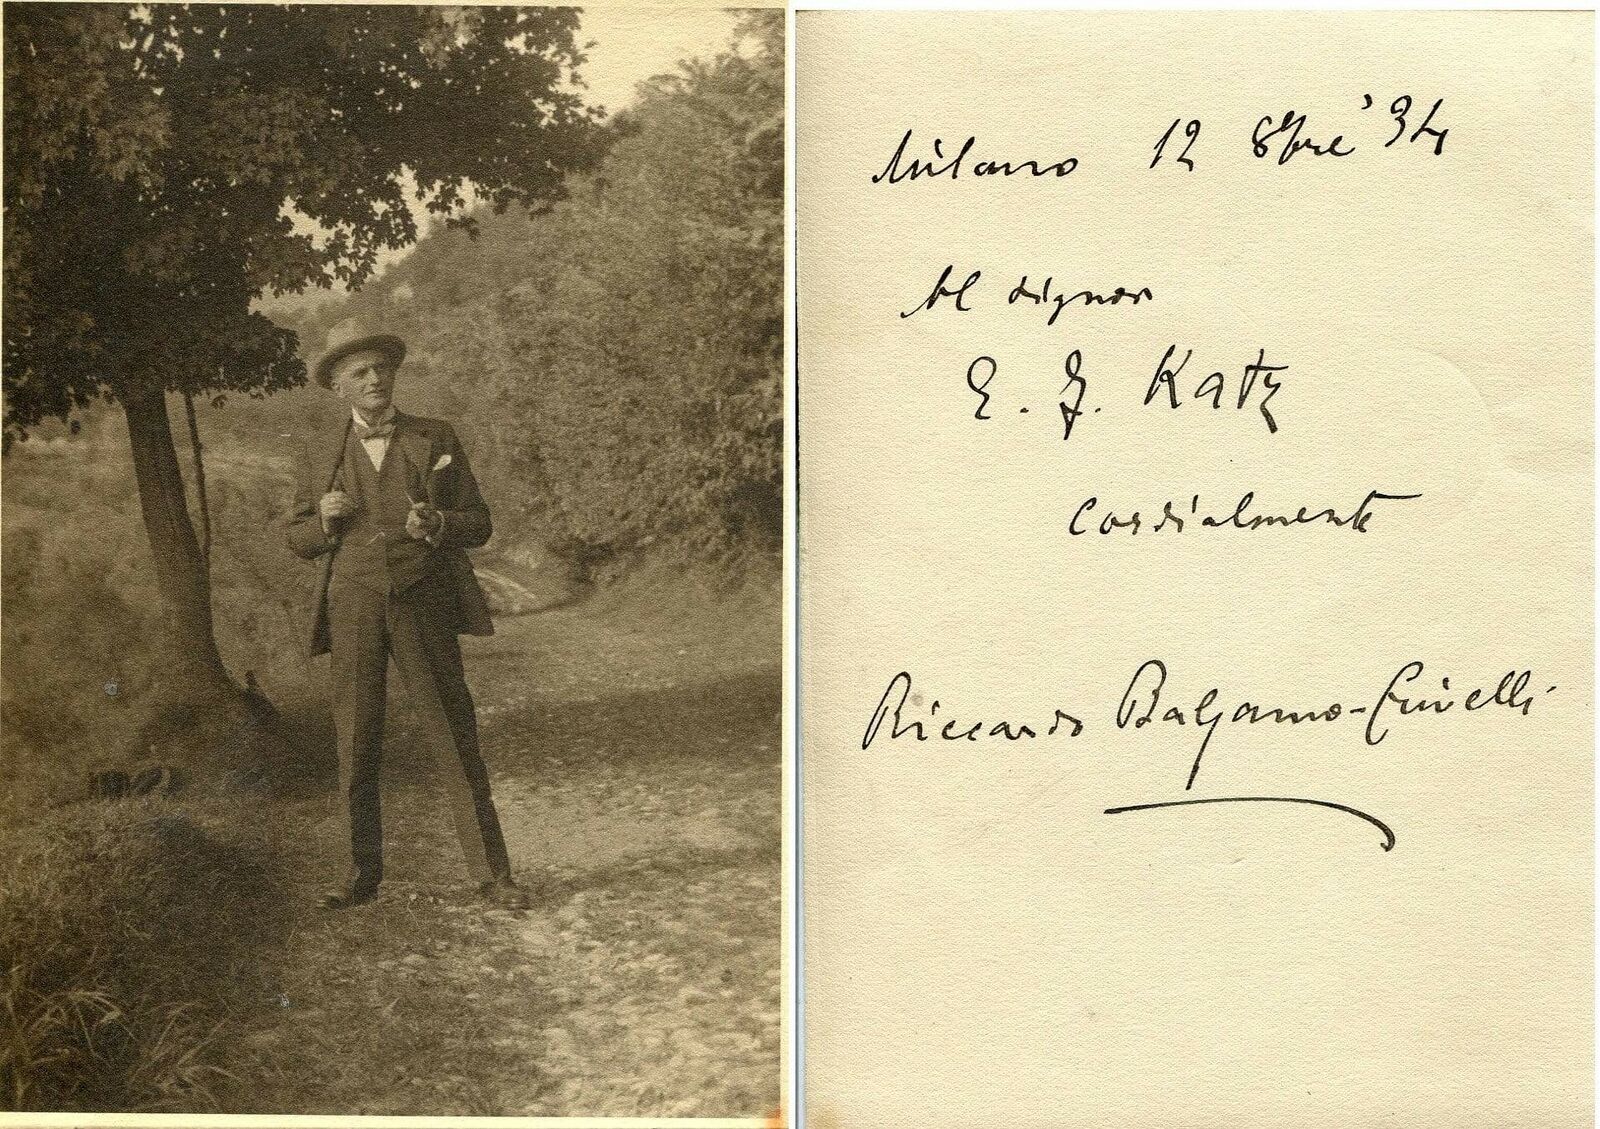 Milano 12 8bre '34
Al signor
E. J. Katz
cordialmente
Riccardo Balsamo-Crivelli